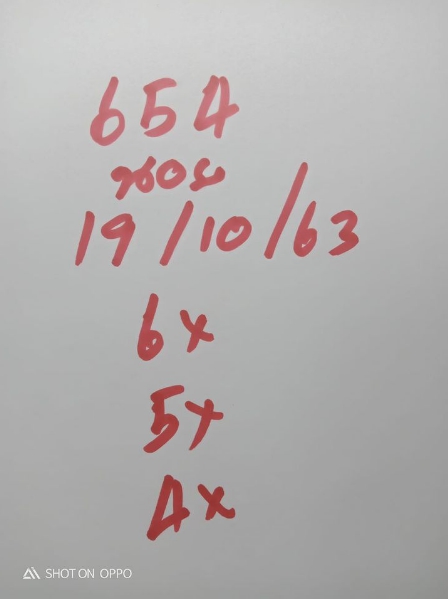 654
ฮานอย
19/10/63
6x
5x
4x
SHOT ON OPPO